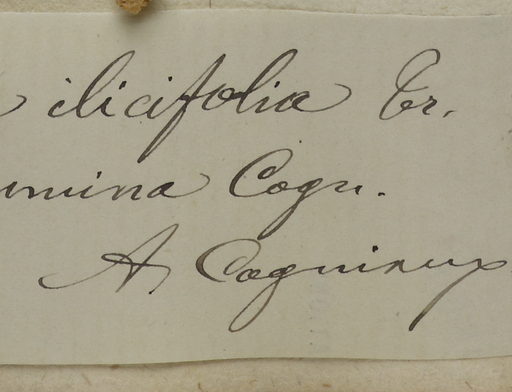 ilicifolia Tr.
umina Cogn.
A Cogniaux